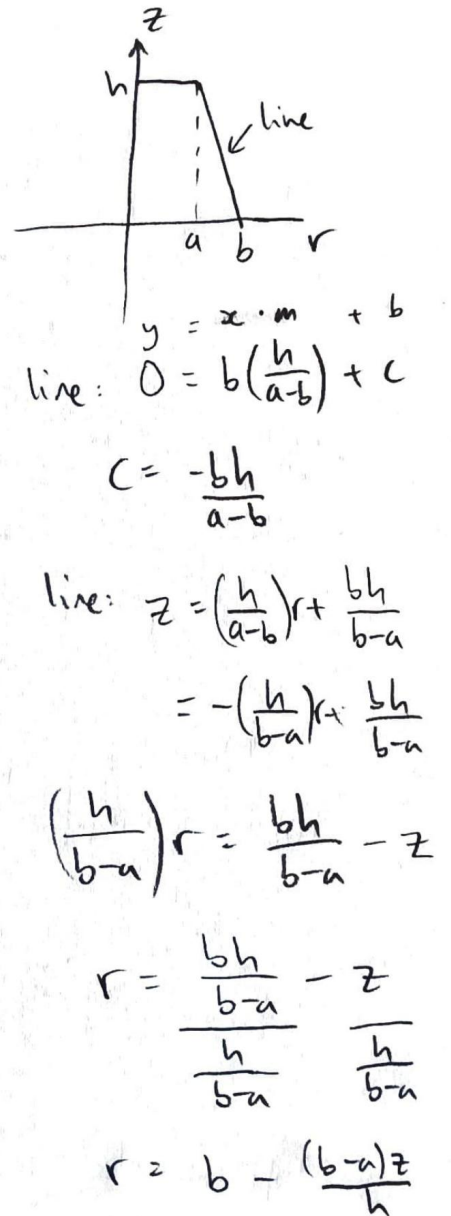 z
h
line
a b r
y = x · m + b
line: 0 = b(h/(a-b)) + c
c = -bh/(a-b)
line: z = (h/(a-b))r + bh/(b-a)
= -(h/(b-a))r + bh/(b-a)
(h/(b-a))r = bh/(b-a) - z
r = (bh/(b-a))/(h/(b-a)) - z/(h/(b-a))
r = b - (b-a)z/h